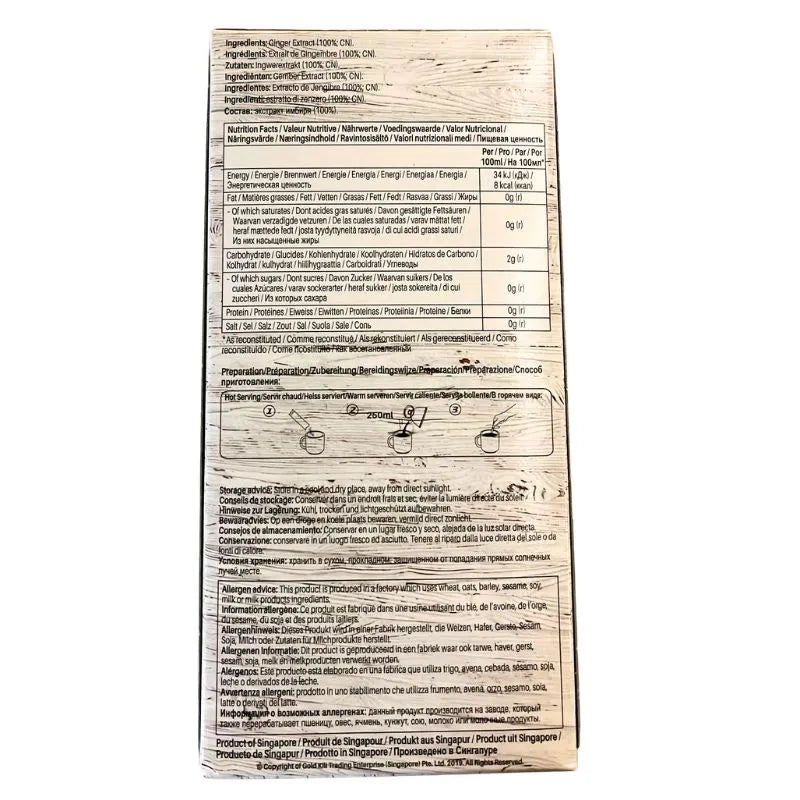 Ingredients: Ginger Extract (100%; CN).
Ingrédients: Extrait de Gingembre (100%; CN).
Zutaten: Ingwerextrakt (100%; CN).
Ingrediënten: Gember Extract (100%; CN).
Ingredientes: Extracto de Jengibre (100%; CN).
Ingredienti: estratto di zenzero (100%; CN).
Состав: экстракт имбиря (100%).
Nutrition Facts / Valeur Nutritive / Nährwerte / Voedingswaarde / Valor Nutricional /
Näringsvärde / Næringsindhold / Ravintosisältö / Valori nutrizionali medi / Пищевая ценность
Per / Pro / Par / Por
100ml / На 100мл*
Energy / Énergie / Brennwert / Energie / Energía / Energi / Energiaa / Energia /
Энергетическая ценность
34 kJ (кДж) /
8 kcal (ккал)
Fat / Matières grasses / Fett / Vetten / Grasas / Fett / Fedt / Rasvaa / Grassi / Жиры
0g (г)
- Of which saturates / Dont acides gras saturés / Davon gesättigte Fettsäuren /
Waarvan verzadigde vetzuren / De las cuales saturadas / varav mättat fett /
heraf mættede fedt / josta tyydyttyneitä rasvoja / di cui acidi grassi saturi /
Из них насыщенные жиры
0g (г)
Carbohydrate / Glucides / Kohlenhydrate / Koolhydraten / Hidratos de Carbono /
Kolhydrat / kulhydrat / hiilihygraattia / Carboidrati / Углеводы
2g (г)
- Of which sugars / Dont sucres / Davon Zucker / Waarvan suikers / De los
cuales Azúcares / varav sockerarter / heraf sukker / josta sokereita / di cui
zuccheri / Из которых сахара
0g (г)
Protein / Protéines / Eiweiss / Eiwitten / Proteinas / Proteiinia / Proteine / Белки
0g (г)
Salt / Sel / Salz / Zout / Sal / Suola / Sale / Соль
0g (г)
*As reconstituted / Comme reconstitué / Als rekonstituiert / Als gereconstitueerd / Como
reconstituido / Come ricostituito / Как восстановленный
Preparation/Préparation/Zubereitung/Bereidingswijze/Preparación/Preparazione/Способ
приготовления:
Hot Serving/Servir chaud/Heiss serviert/Warm serveren/Servir caliente/Servita bollente/В горячем виде:
1 2 3
250ml
Storage advice: Store in a cool and dry place, away from direct sunlight.
Conseils de stockage: Conserver dans un endroit frais et sec, éviter la lumière directe du soleil
Hinweise zur Lagerung: Kühl, trocken und lichtgeschützt aufbewahren.
Bewaaradvies: Op een droge en koele plaats bewaren, vermijd direct zonlicht.
Consejos de almacenamiento: Conservar en un lugar fresco y seco, alejada de la luz solar directa.
Conservazione: conservare in un luogo fresco ed asciutto. Tenere al riparo dalla luce diretta del sole o da
fonti di calore.
Условия хранения: хранить в сухом, прохладном, защищенном от попадания прямых солнечных
лучей месте.
Allergen advice: This product is produced in a factory which uses wheat, oats, barley, sesame, soy,
milk or milk products ingredients.
Information allergène: Ce produit est fabriqué dans une usine utilisant du blé, de l'avoine, de l'orge,
du sésame, du soja et des produits laitiers.
Allergenhinweis: Dieses Produkt wird in einer Fabrik hergestellt, die Weizen, Hafer, Gerste, Sesam,
Soja, Milch oder Zutaten für Milchprodukte herstellt.
Allergenen Informatie: Dit product is geproduceerd in een fabriek waar ook tarwe, haver, gerst,
sesam, soja, melk en melkproducten verwerkt worden.
Alérgenos: Este producto está elaborado en una fábrica que utiliza trigo, avena, cebada, sésamo, soja,
leche o derivados de la leche.
Avvertenza allergeni: prodotto in uno stabilimento che utilizza frumento, avena, orzo, sesamo, soia,
latte o derivati del latte.
Информация о возможных аллергенах: данный продукт производится на заводе, который
также перерабатывает пшеницу, овес, ячмень, кунжут, сою, молоко или молочные продукты.
Product of Singapore / Produit de Singapour / Produkt aus Singapur / Product uit Singapore /
Producto de Singapur / Prodotto in Singapore / Произведено в Сингапуре
© Copyright of Gold Kili Trading Enterprise (Singapore) Pte. Ltd. 2019. All Rights Reserved.